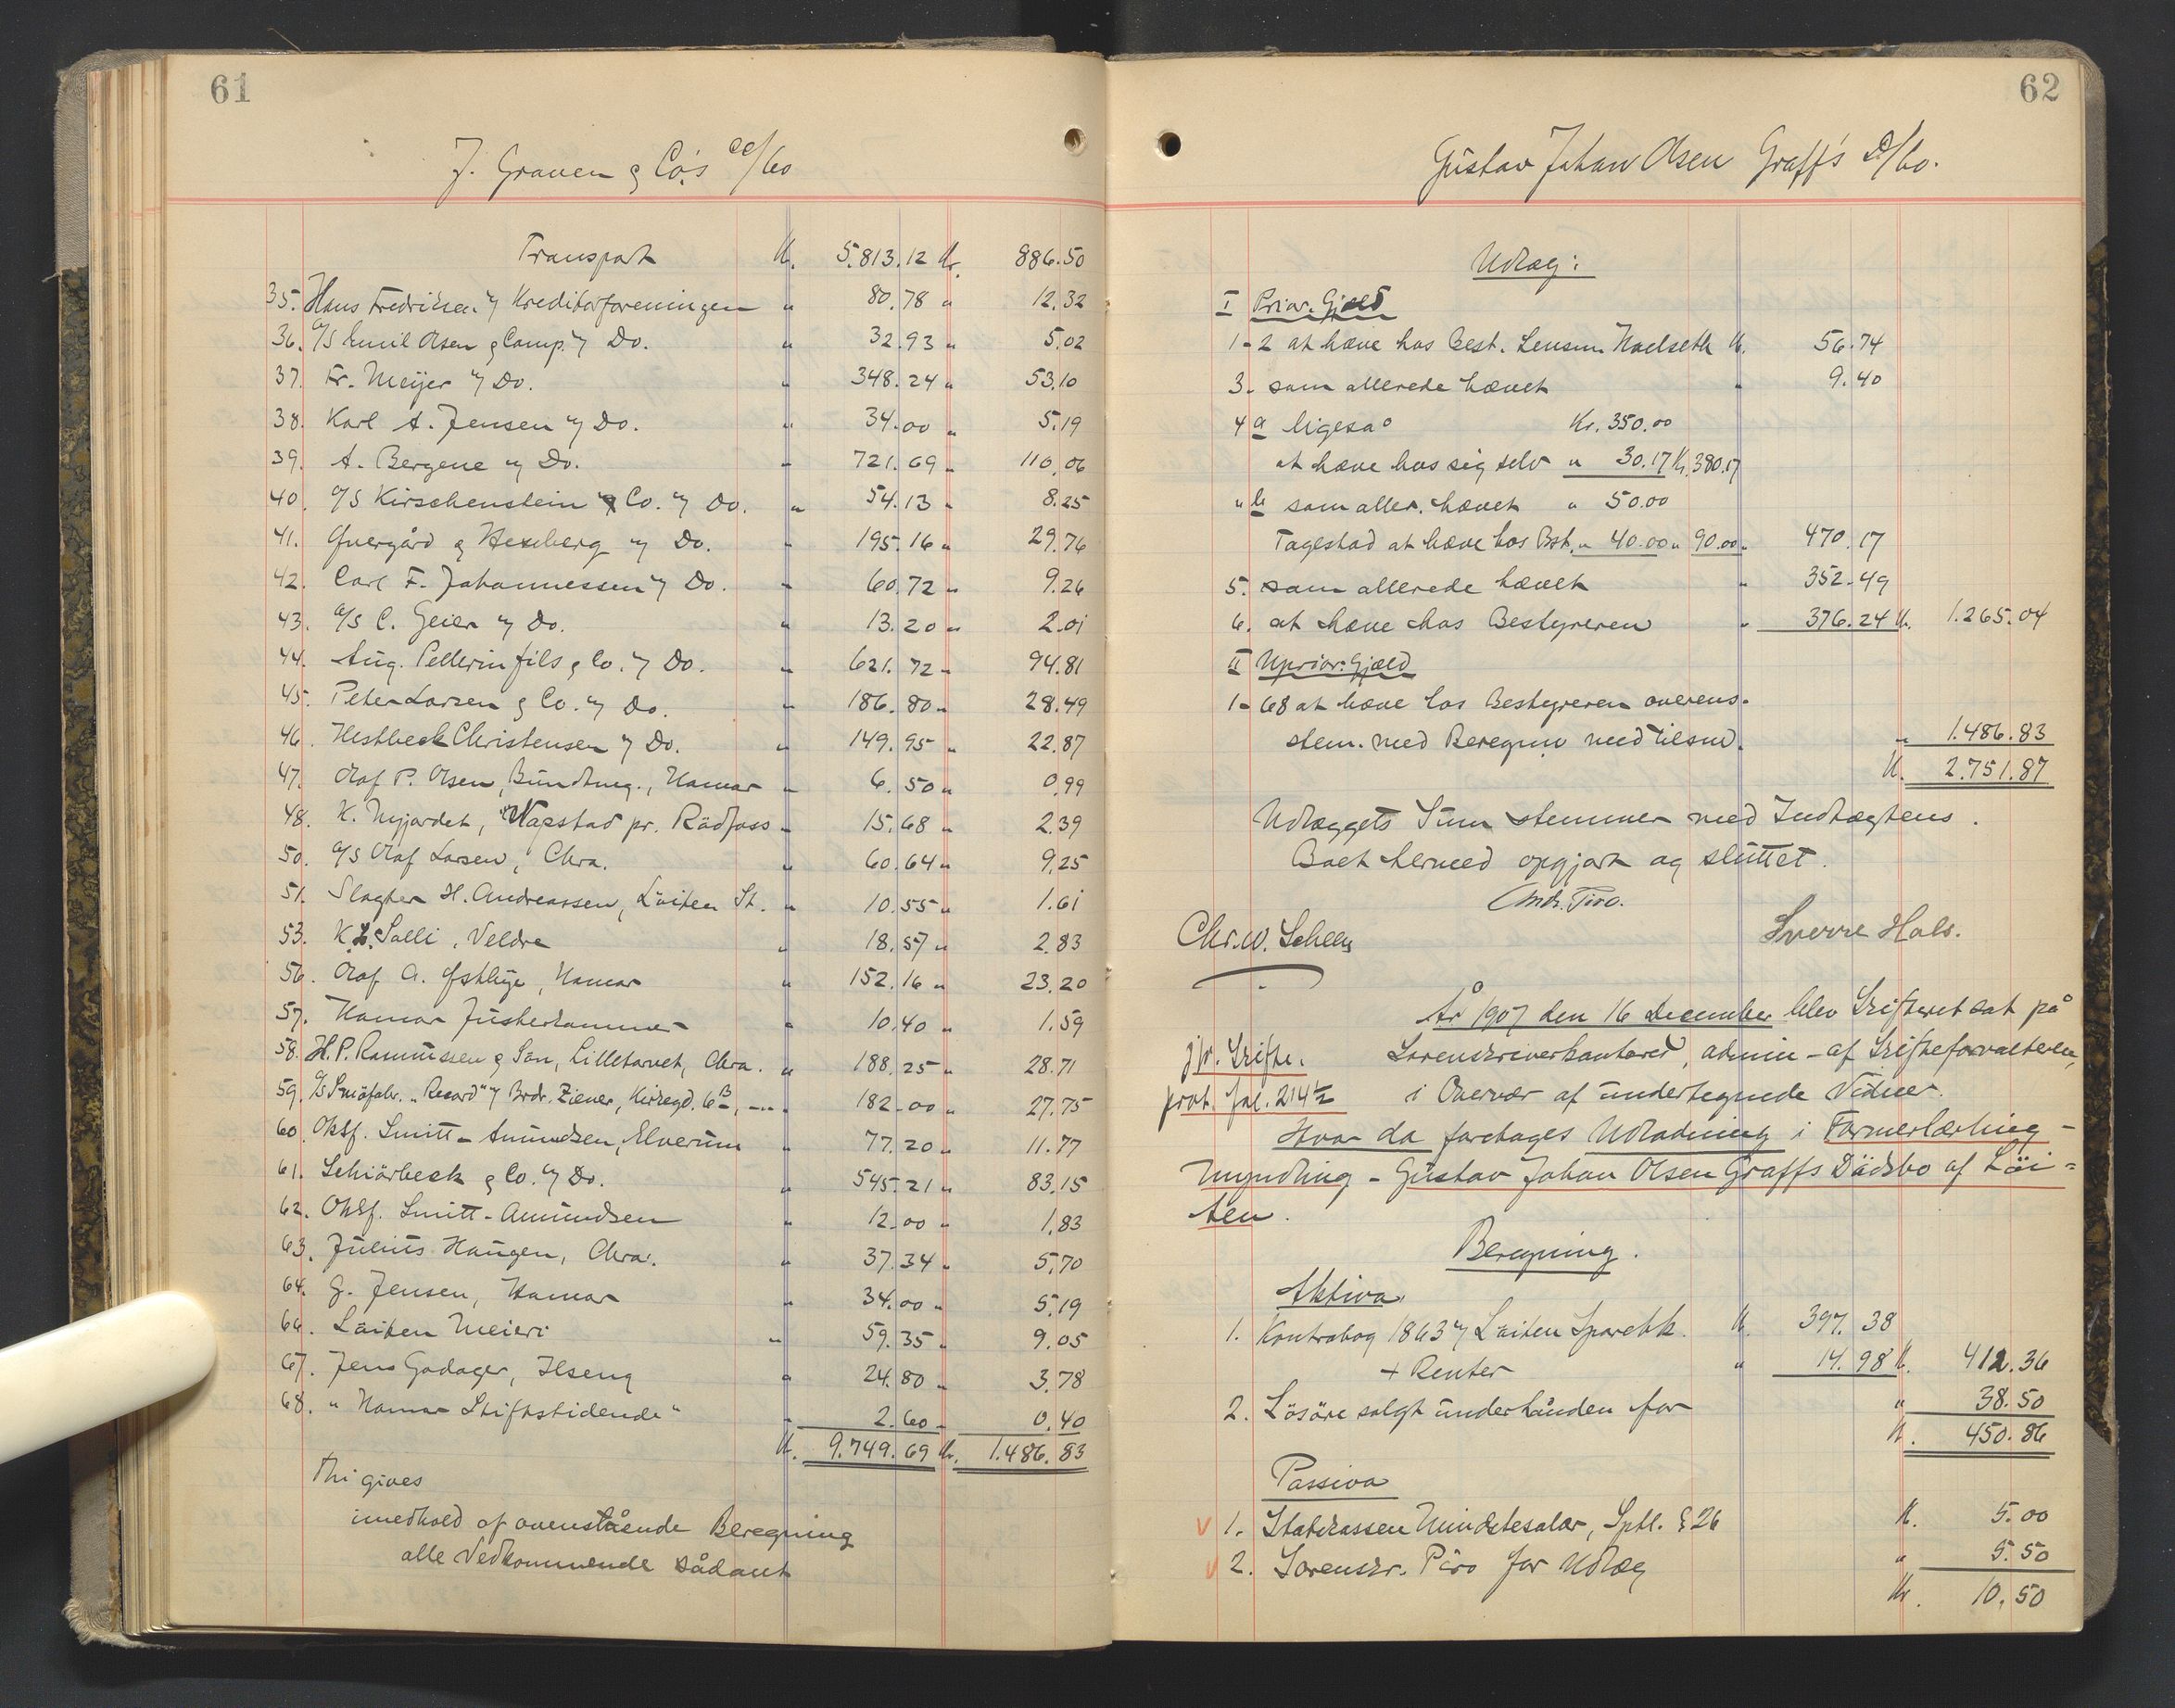 61
J. Graven & Co's /bo
Transport Kr. 5.813.12 Kr. 886.50
35. Hans Fredriksen v/ Kreditorforeningen " 80.78 " 12.32
36. A/S Emil Olsen & Comp. v/ Do. " 32.93 " 5.02
37. Fr. Meijer v/ Do. " 348.24 " 53.10
38. Karl A. Jensen v/ Do. " 34.00 " 5.19
39. A. Bergene v/ Do. " 721.69 " 110.06
40. A/S Kirschenstein & Co. v/ Do. " 54.13 " 8.25
41. Qvergård & Hexeberg v/ Do. " 195.16 " 29.76
42. Carl F. Johannessen v/ Do. " 60.72 " 9.26
43. A/S C. Geier v/ Do. " 13.20 " 2.01
44. Aug. Pellerin fils & Co. v/ Do. " 621.72 " 94.81
45. Peter Larsen & Co. v/ Do. " 186.80 " 28.49
46. Hestbeck Christensen v/ Do. " 149.95 " 22.87
47. Olaf P. Olsen, Bundtmg., Hamar " 6.50 " 0.99
48. K. Nyjordet, pr. Rødfoss " 15.68 " 2.39
50. A/S Olaf Larsen, Chra. " 60.64 " 9.25
51. Slagter H. Andreassen, Löiten St. " 10.55 " 1.61
53. K. L. Salli, Veldre " 18.57 " 2.83
56. Olaf A. Østbye, Hamar " 152.16 " 23.20
57. Hamar Justerkammer " 10.40 " 1.59
58. H. P. Rasmussen & Sön, Lilletorvet, Chra. " 188.25 " 28.71
59. A/S Smöfabr. "Record" v/ Brdr. Ziener, Kirkegd. 6B, -"- " 182.00 " 27.75
60. Oksf. Smitt-Amundsen, Elverum " 77.20 " 11.77
61. Schiörbeck & Co. v/ Do. " 545.21 " 83.15
62. Oksf. Smitt-Amundsen " 12.00 " 1.83
63. Julius Haugen, Chra. " 37.34 " 5.70
64. G. Jensen, Hamar " 34.00 " 5.19
66. Löiten Meieri " 59.35 " 9.05
67. Jens Godager, Ilseng " 24.80 " 3.78
68. "Hamar Stiftstidende" " 2.60 " 0.40
Kr. 9.749.69 Kr. 1.486.83
Thi gives
imedhold af ovenstående Beregning
alle Vedkommende sådant
62
Gustav Johan Olsen Graff's D/bo.
Udlæg:
I Prior. Gjæld
1-2 at hæve hos Best. Lensm. Kr. 56.74
3. som allerede hævet " 9.40
4 a ligesaa Kr. 350.00
at hæve hos sig selv " 30.17 Kr. 380.17
" b som aller. hævet " 50.00
Tagestad at hæve hos Bst. " 40.00 " 90.00 " 470.17
5. som allerede hævet " 352.49
6. at hæve hos Bestyreren " 376.24 Kr. 1.265.04
II Uprior. Gjæld
1-68 at hæve hos Bestyreren overens-
stem. med Beregnin med tilsm. " 1.486.83
Kr. 2.751.87
Udlæggets Sum stemmer med Indtægtens.
Boet hermed opgjort og sluttet.
Andr. Piro.
Chr. W. Scheen Sverre Hals.
År 1907 den 16 December blev Skifteret sat på
jfr. Skifte- Sorenskriverkontoret, admin. af Skifteforvalteren,
prot. fol. 214 i Overvær af undertegnede Vidner.
Hvor da foretages Udlodning i Farmerlærling-
myndling - Gustav Johan Olsen Graffs Dödsbo af Löi-
ten.
Beregning.
Aktiva
1. Kontrabog 1863 v/ Löiten Sparebk. Kr. 397.38
+ Renter " 14.98 Kr. 412.36
2. Lösöre solgt underhånden for " 38.50
Kr. 450.86
Passiva
1. Statskassen Mindstesalær, Sptl. § 26 Kr. 5.00
2. Sorenskr. Piro for Udlæg " 5.50
Kr. 10.50